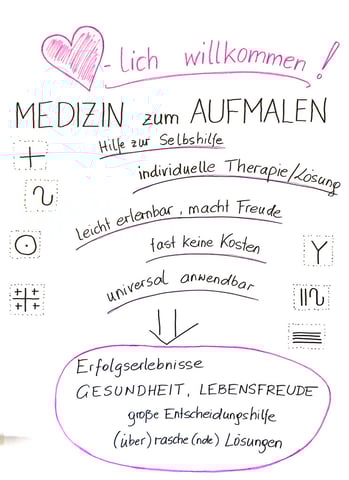 -lich willkommen!
MEDIZIN zum AUFMALEN
Hilfe zur Selbshilfe
individuelle Therapie/Lösung
leicht erlernbar, macht Freude
fast keine Kosten
universal anwendbar
Erfolgserlebnisse
GESUNDHEIT, LEBENSFREUDE
große Entscheidungshilfe
(über)rasche(nde) Lösungen